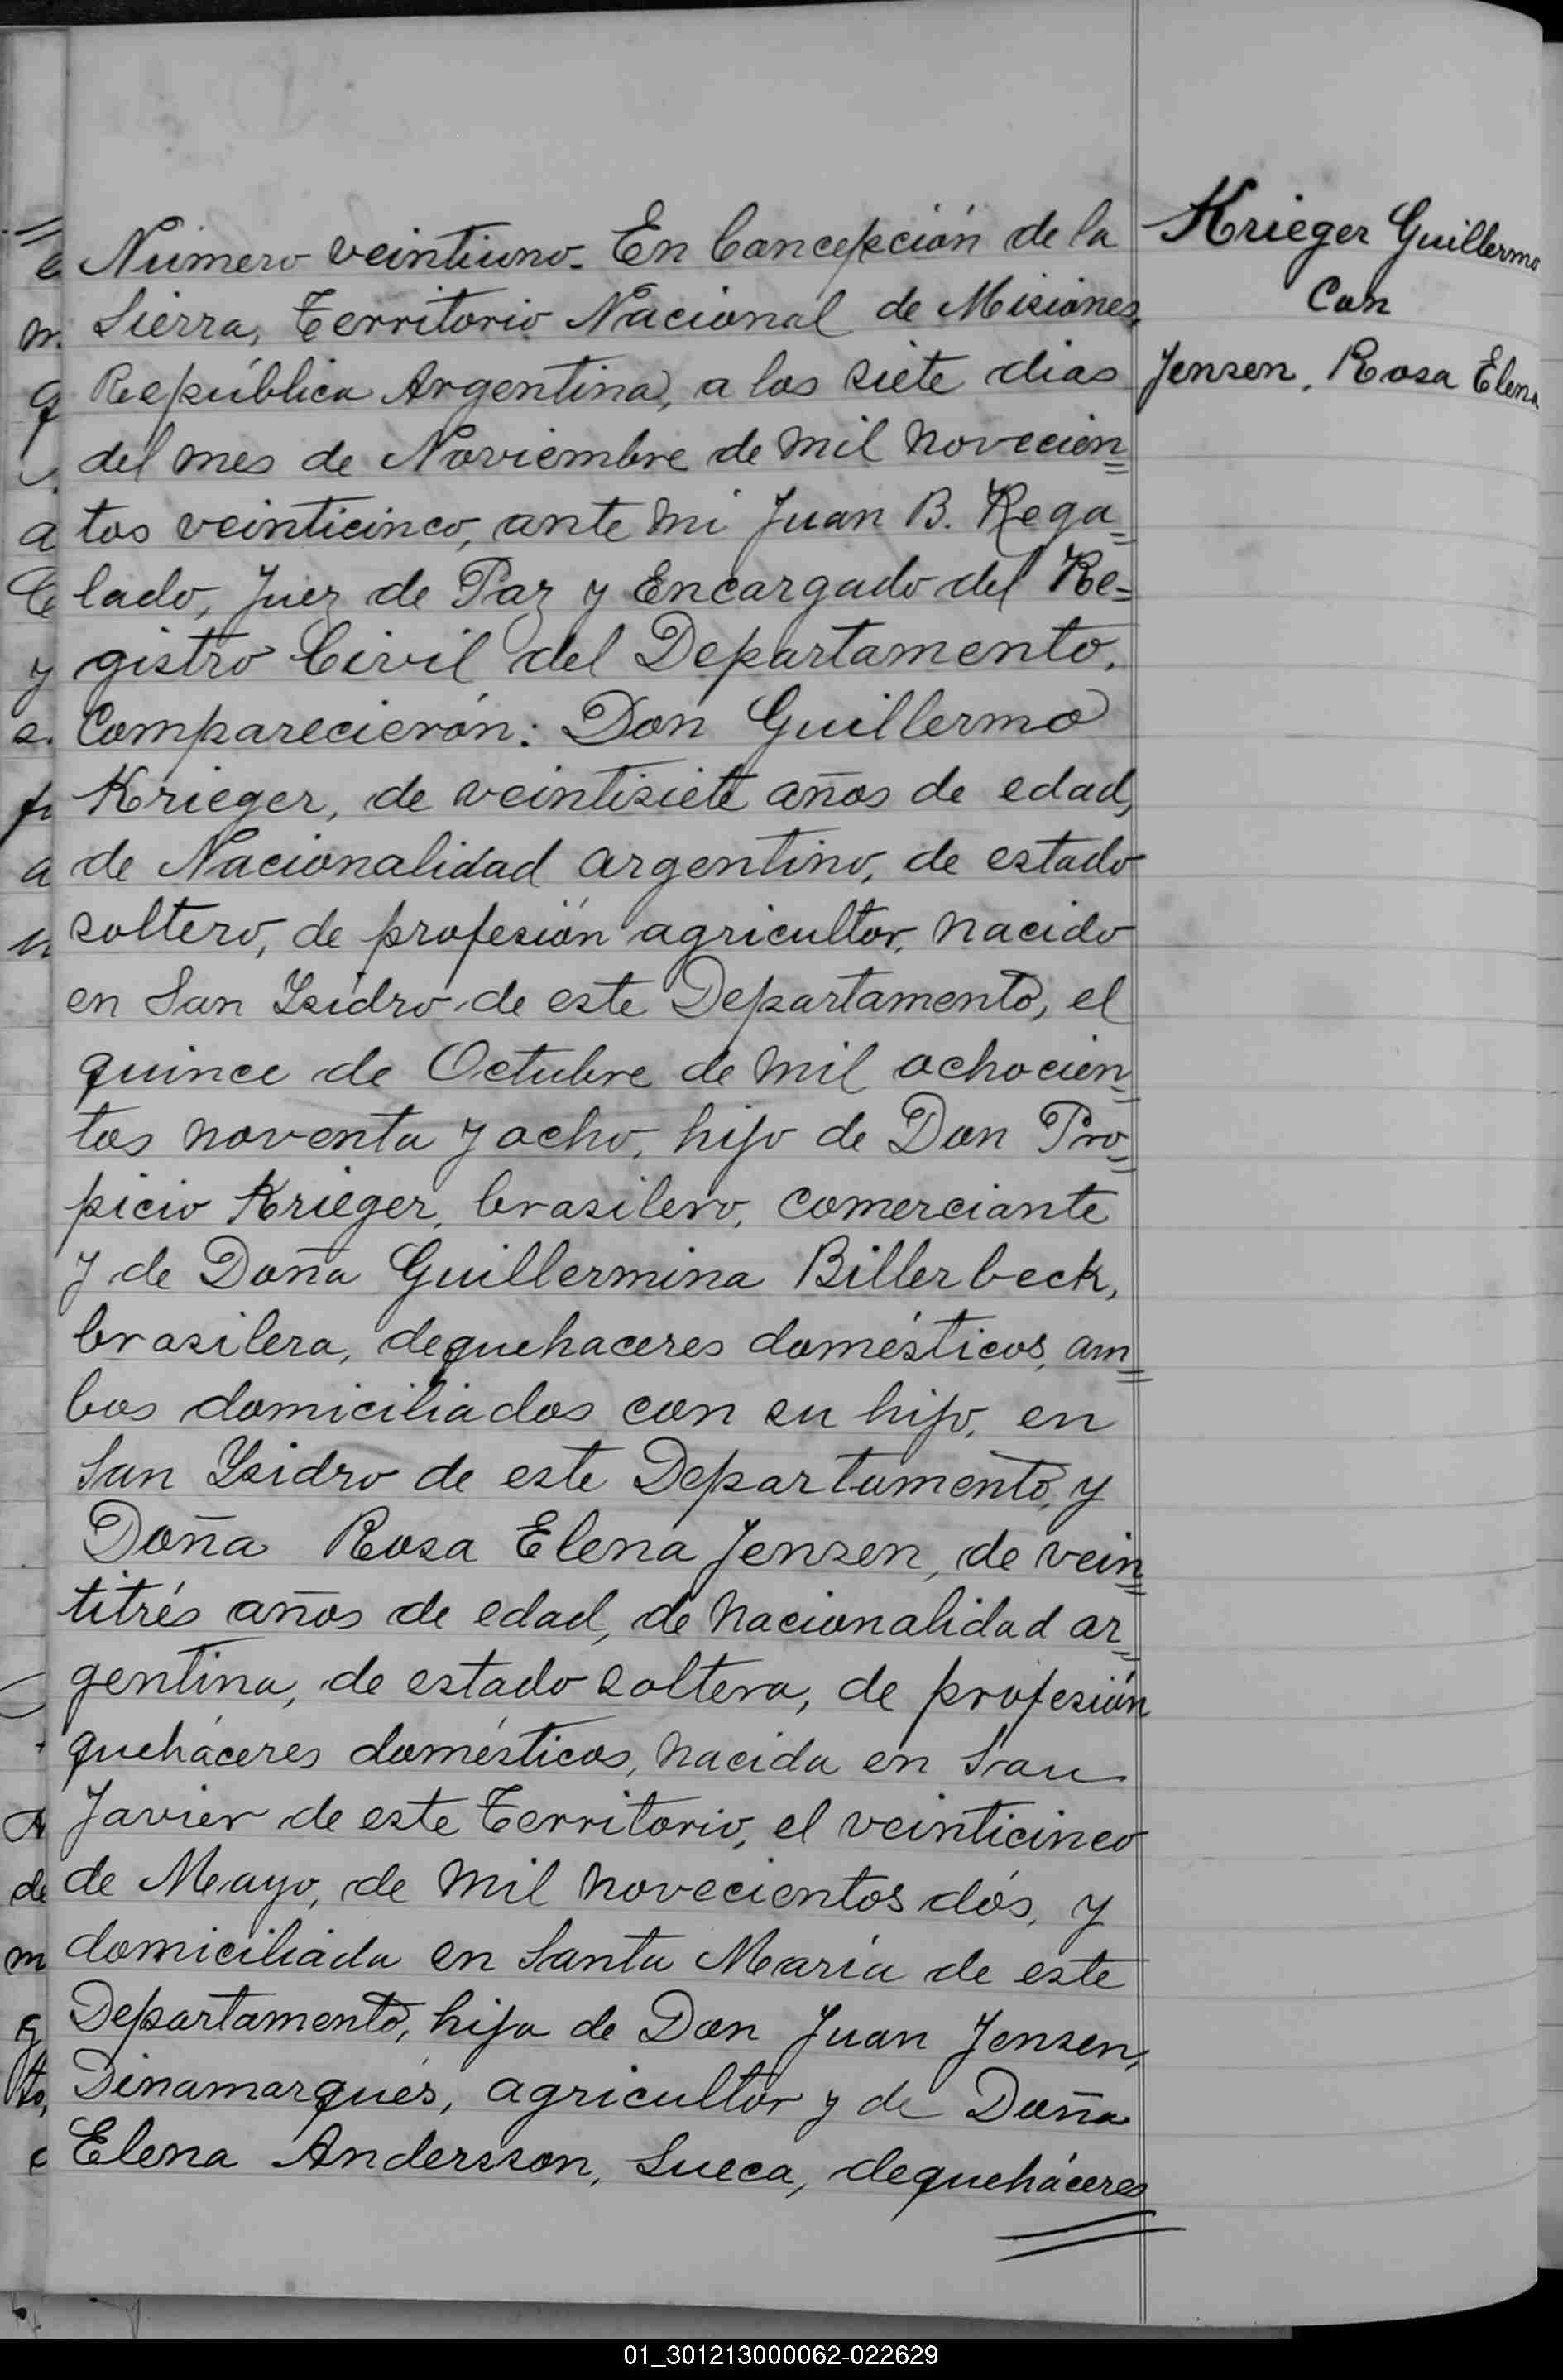 Número veintiuno. En Concepción de la
Sierra, Territorio Nacional de Misiones,
República Argentina, a los siete dias
del mes de Noviembre de mil novecien=
tos veinticinco, ante mi Juan B. Rega=
lado, Juez de Paz y Encargado del Re=
gistro Civil del Departamento,
Comparecierón: Don Guillermo
Krieger, de veintisiete años de edad,
de Nacionalidad argentino, de estado
soltero, de profesión agricultor, nacido
en San Ysidro de este Departamento, el
quince de Octubre de mil ochocien=
tos noventa y ocho, hijo de Don Pro=
picio Krieger, brasilero, comerciante
y de Doña Guillermina Billerbeck,
brasilera, dequehaceres domésticos, am=
bos domiciliados con su hijo, en
San Ysidro de este Departamento, y
Doña Rosa Elena Jensen, de vein=
titrés años de edad, de nacionalidad ar=
gentina, de estado soltera, de profesión
queháceres domésticos, nacida en San
Javier de este Territorio, el veinticinco
de Mayo, de mil novecientos dós, y
domiciliada en Santa María de este
Departamento, hija de Don Juan Jensen,
Dinamarqués, agricultor y de Doña
Elena Andersson, Sueca, dequeháceres
Krieger Guillermo
Con
Jensen, Rosa Elena
01_301213000062-022629